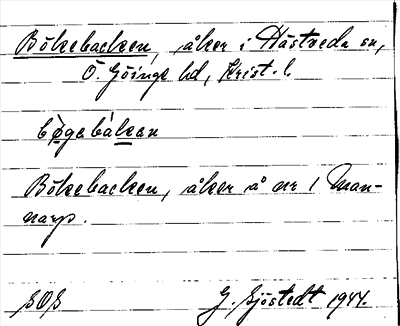 Bökebacken, åker i Hästveda sn,
Ö. Göinge hd, Krist. l.
bø̀gabàkan
Bökebacken, åker å nr 1 Man-
narp.
SOS
G. Sjöstedt 1944.